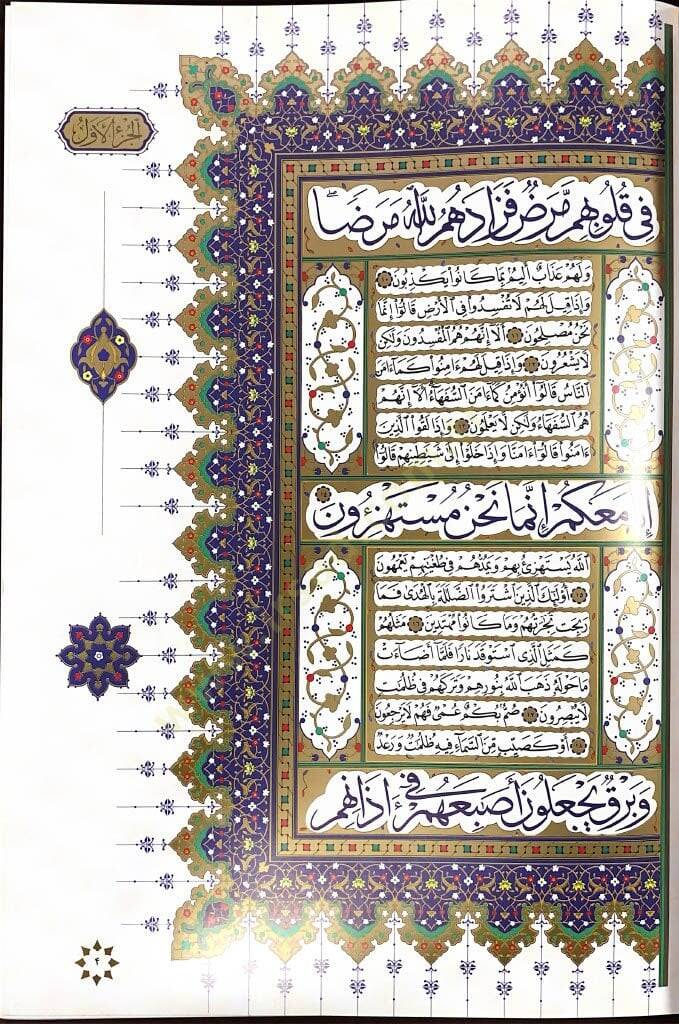 الجزء الأول
فِى قُلُوبِهِم مَّرَضٌ فَزَادَهُمُ ٱللَّهُ مَرَضًاۖ
وَلَهُمْ عَذَابٌ أَلِيمٌۢ بِمَا كَانُوا۟ يَكْذِبُونَ ١٠
وَإِذَا قِيلَ لَهُمْ لَا تُفْسِدُوا۟ فِى ٱلْأَرْضِ قَالُوٓا۟ إِنَّمَا
نَحْنُ مُصْلِحُونَ ١١ أَلَآ إِنَّهُمْ هُمُ ٱلْمُفْسِدُونَ وَلَٰكِن
لَّا يَشْعُرُونَ ١٢ وَإِذَا قِيلَ لَهُمْ ءَامِنُوا۟ كَمَآ ءَامَنَ
ٱلنَّاسُ قَالُوٓا۟ أَنُؤْمِنُ كَمَآ ءَامَنَ ٱلسُّفَهَآءُۗ أَلَآ إِنَّهُمْ
هُمُ ٱلسُّفَهَآءُ وَلَٰكِن لَّا يَعْلَمُونَ ١٣ وَإِذَا لَقُوا۟ ٱلَّذِينَ
ءَامَنُوا۟ قَالُوٓا۟ ءَامَنَّا وَإِذَا خَلَوْا۟ إِلَىٰ شَيَٰطِينِهِمْ قَالُوٓا۟
إِنَّا مَعَكُمْ إِنَّمَا نَحْنُ مُسْتَهْزِءُونَ ١٤
ٱللَّهُ يَسْتَهْزِئُ بِهِمْ وَيَمُدُّهُمْ فِى طُغْيَٰنِهِمْ يَعْمَهُونَ
١٥ أُو۟لَٰٓئِكَ ٱلَّذِينَ ٱشْتَرَوُا۟ ٱلضَّلَٰلَةَ بِٱلْهُدَىٰ فَمَا
رَبِحَت تِّجَٰرَتُهُمْ وَمَا كَانُوا۟ مُهْتَدِينَ ١٦ مَثَلُهُمْ
كَمَثَلِ ٱلَّذِى ٱسْتَوْقَدَ نَارًا فَلَمَّآ أَضَآءَتْ
مَا حَوْلَهُۥ ذَهَبَ ٱللَّهُ بِنُورِهِمْ وَتَرَكَهُمْ فِى ظُلُمَٰتٍ
لَّا يُبْصِرُونَ ١٧ صُمٌّۢ بُكْمٌ عُمْىٌ فَهُمْ لَا يَرْجِعُونَ
١٨ أَوْ كَصَيِّبٍ مِّنَ ٱلسَّمَآءِ فِيهِ ظُلُمَٰتٌ وَرَعْدٌ
وَبَرْقٌ يَجْعَلُونَ أَصَٰبِعَهُمْ فِىٓ ءَاذَانِهِم
۴